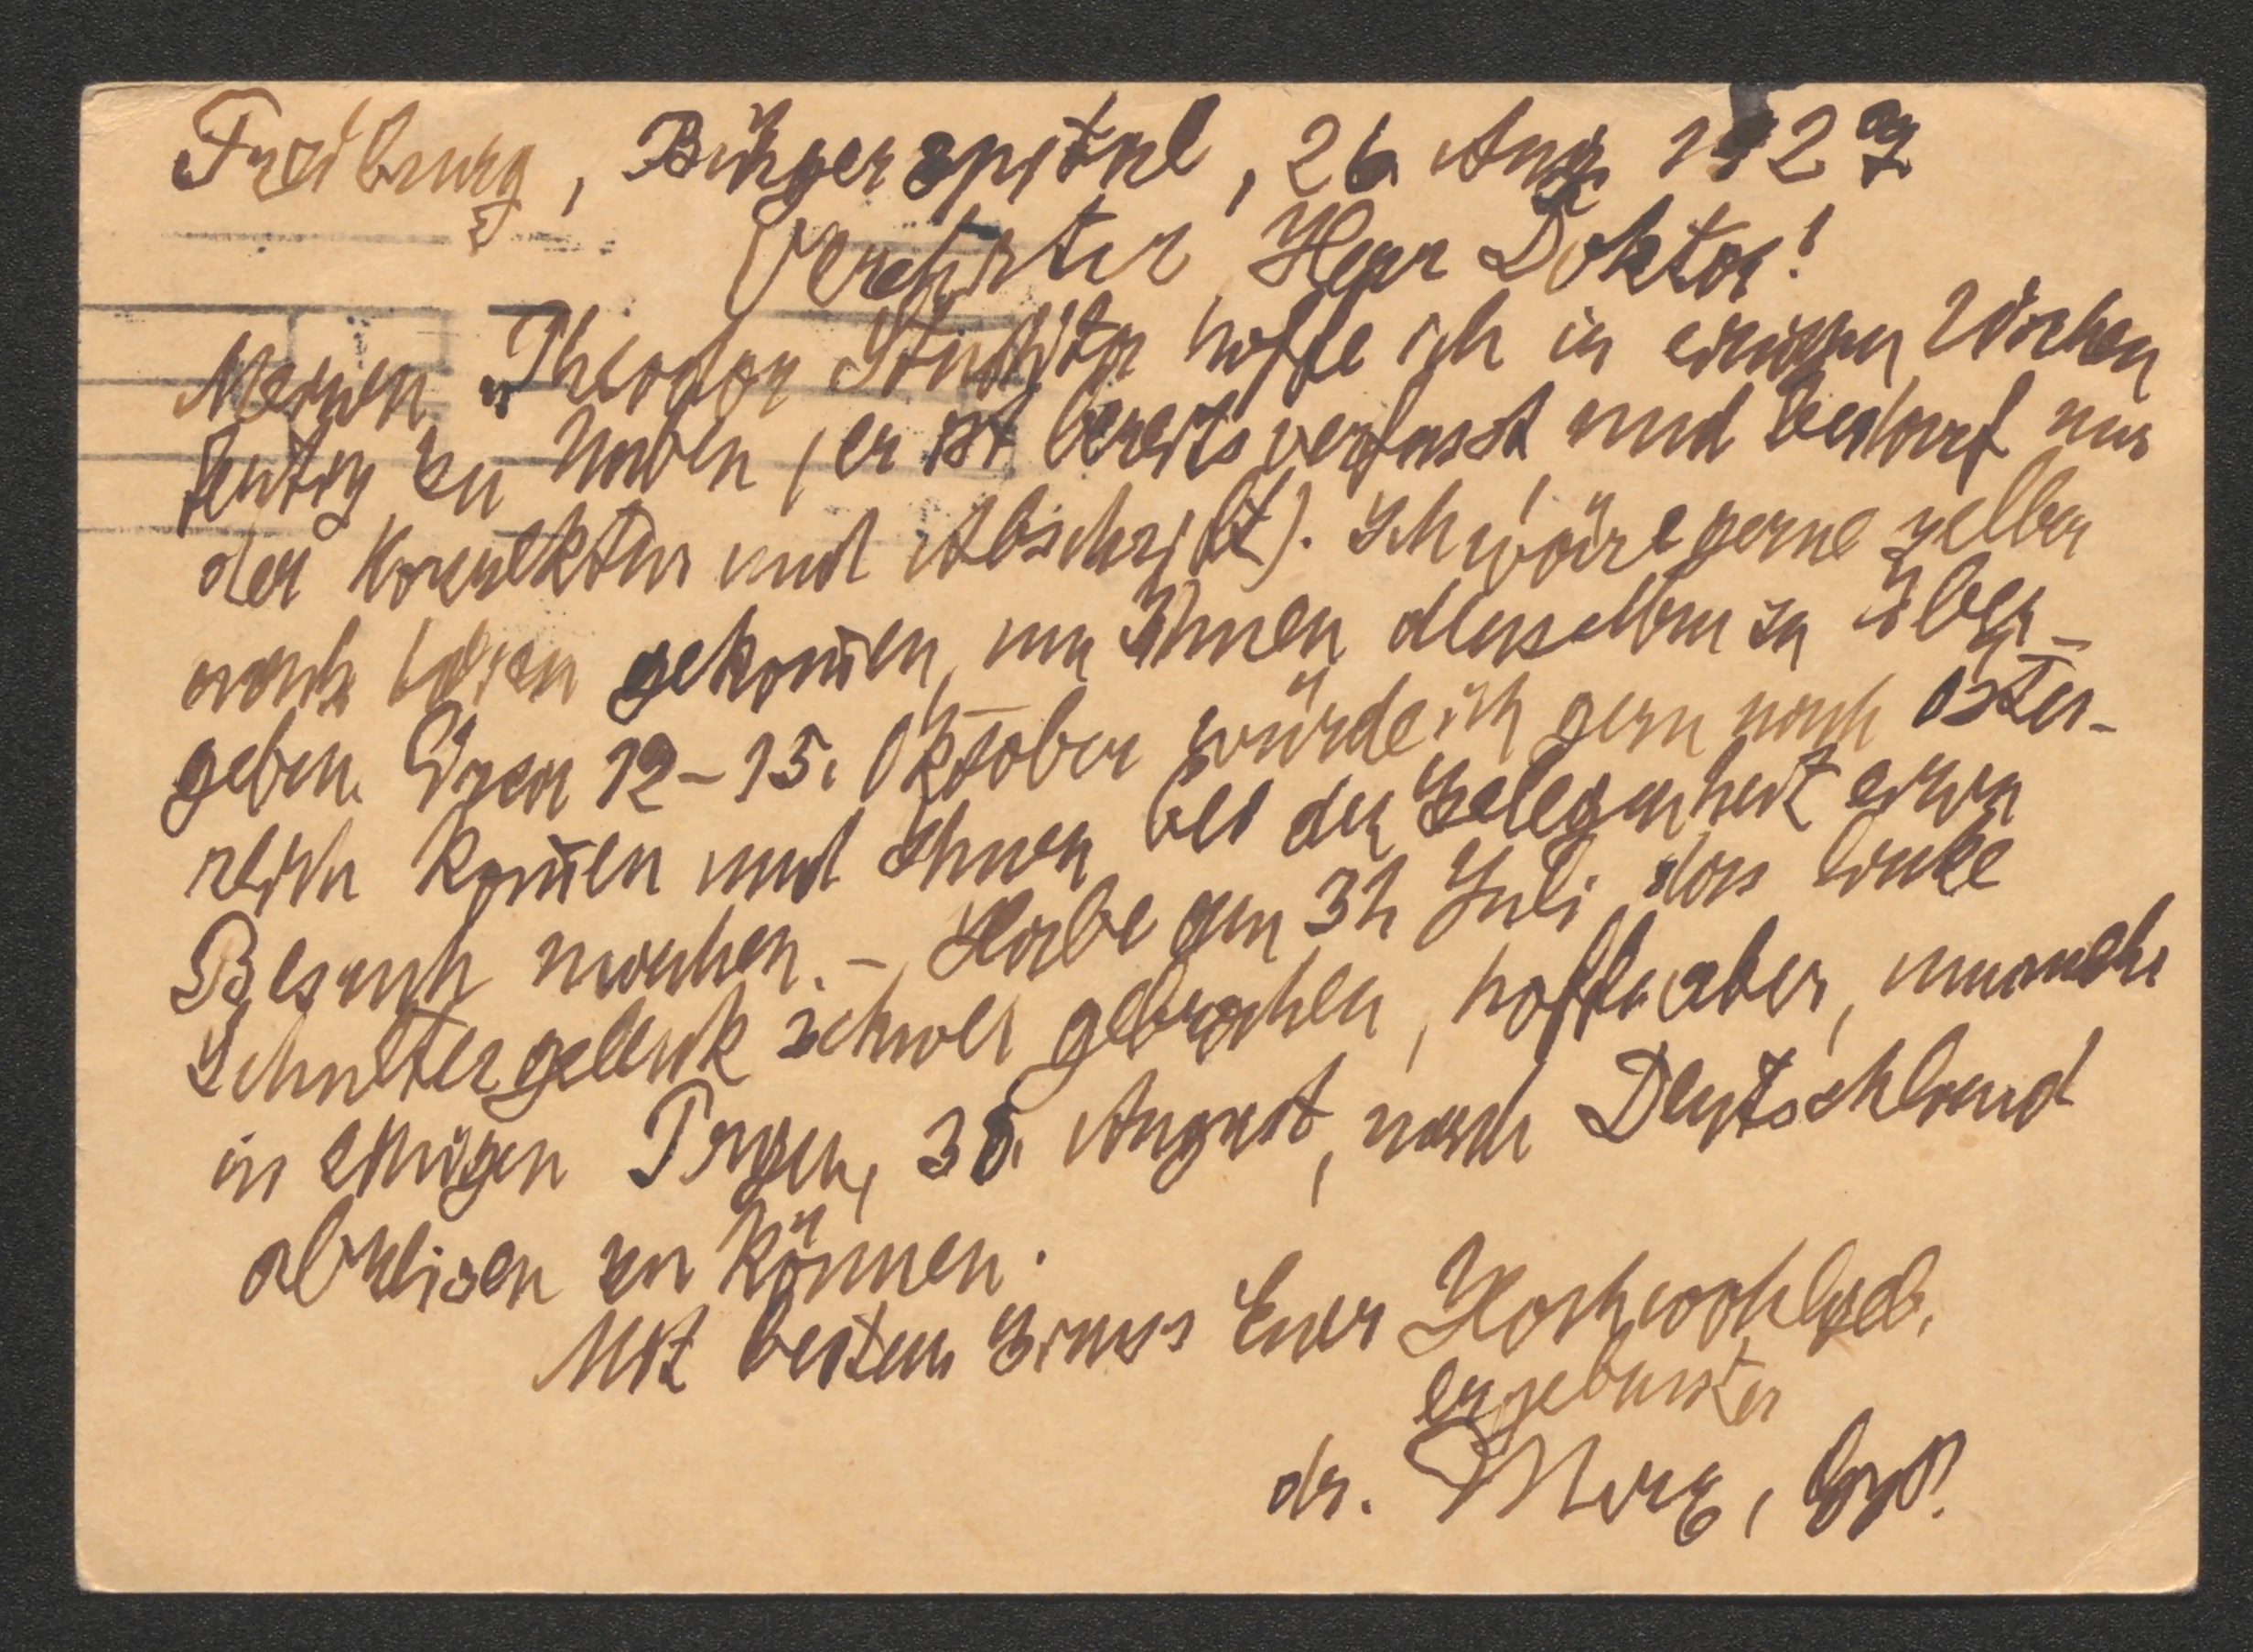 Freiburg, Bürgerspital, 26 Aug 1929
Verehrter Herr Doktor!
Meinen „Theodor Studita hoffe ich in einigen Wochen
fertig zu haben (er ist bereits verfasst und bedarf nur
der Korrektur und Abschrift). Ich wäre gerne selber
nach Wien gekom̄en, um Ihnen denselben zu über-
geben. 12-15. Oktober würde ich gern nach Öster-
reich kom̄en und Ihnen bei der Gelegenheit einen
Besuch machen. - Habe am Juli das linke
Schultergelenk schwer gebrochen, hoffe aber, nunmehr
in einigen Tagen, 30. August, nach Deutschland
abreisen zu können.
Mit bestem Gruss Euer Hochwohlgeb.
ergebenster
dr.